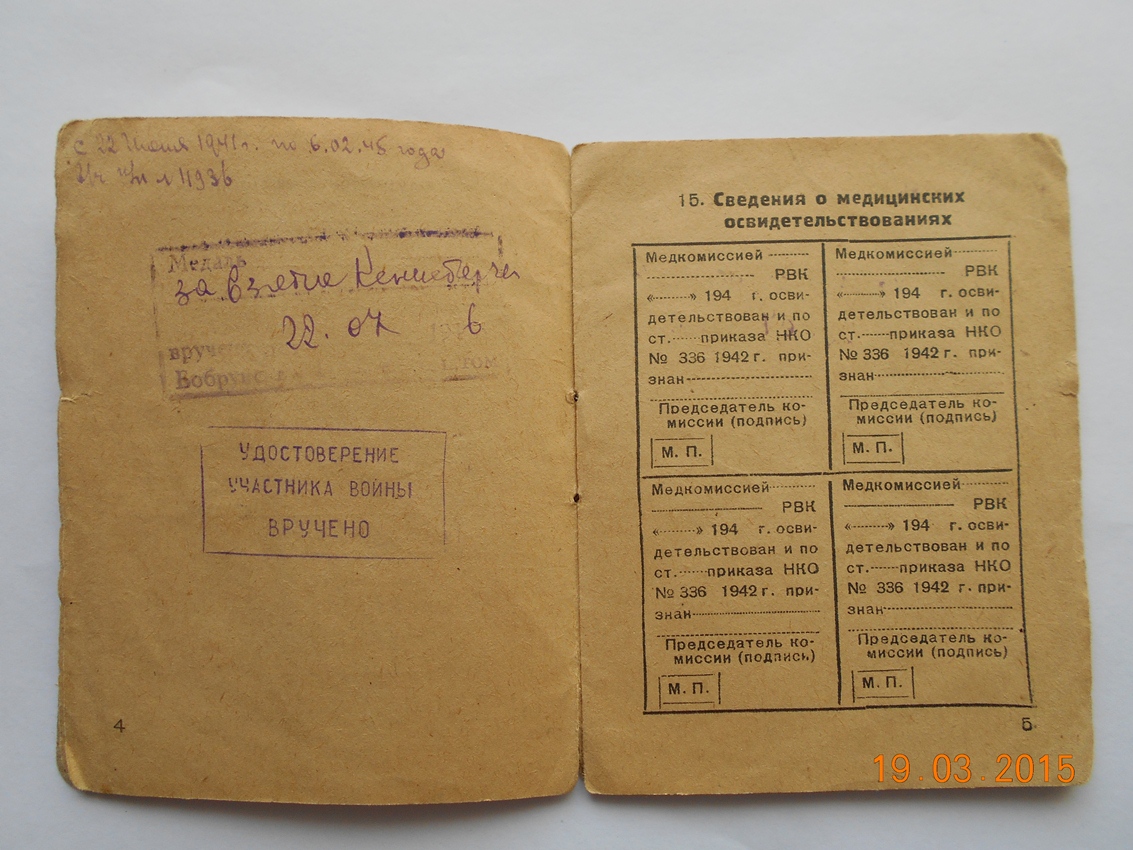 с 22 Июня 1941г. по 6.02.45 года
Медаль
за взятие Кенигсберга
22. 07 6
вручена
УДОСТОВЕРЕНИЕ
УЧАСТНИКА ВОЙНЫ
ВРУЧЕНО
4
15. Сведения о медицинских
освидетельствованиях
Медкомиссией
РВК
« » 194 г. осви-
детельствован и по
ст. приказа НКО
№ 336 1942 г. при-
знан
Председатель ко-
миссии (подпись)
М. П.
Медкомиссией
РВК
« » 194 г. осви-
детельствован и по
ст. приказа НКО
№ 336 1942 г. при-
знан
Председатель ко-
миссии (подпись)
М. П.
Медкомиссией
РВК
« » 194 г. осви-
детельствован и по
ст. приказа НКО
№ 336 1942 г. при-
знан
Председатель ко-
миссии (подпись)
М. П.
Медкомиссией
РВК
« » 194 г. осви-
детельствован и по
ст. приказа НКО
№ 336 1942 г. при-
знан
Председатель ко-
миссии (подпись)
М. П.
5
19.03.2015